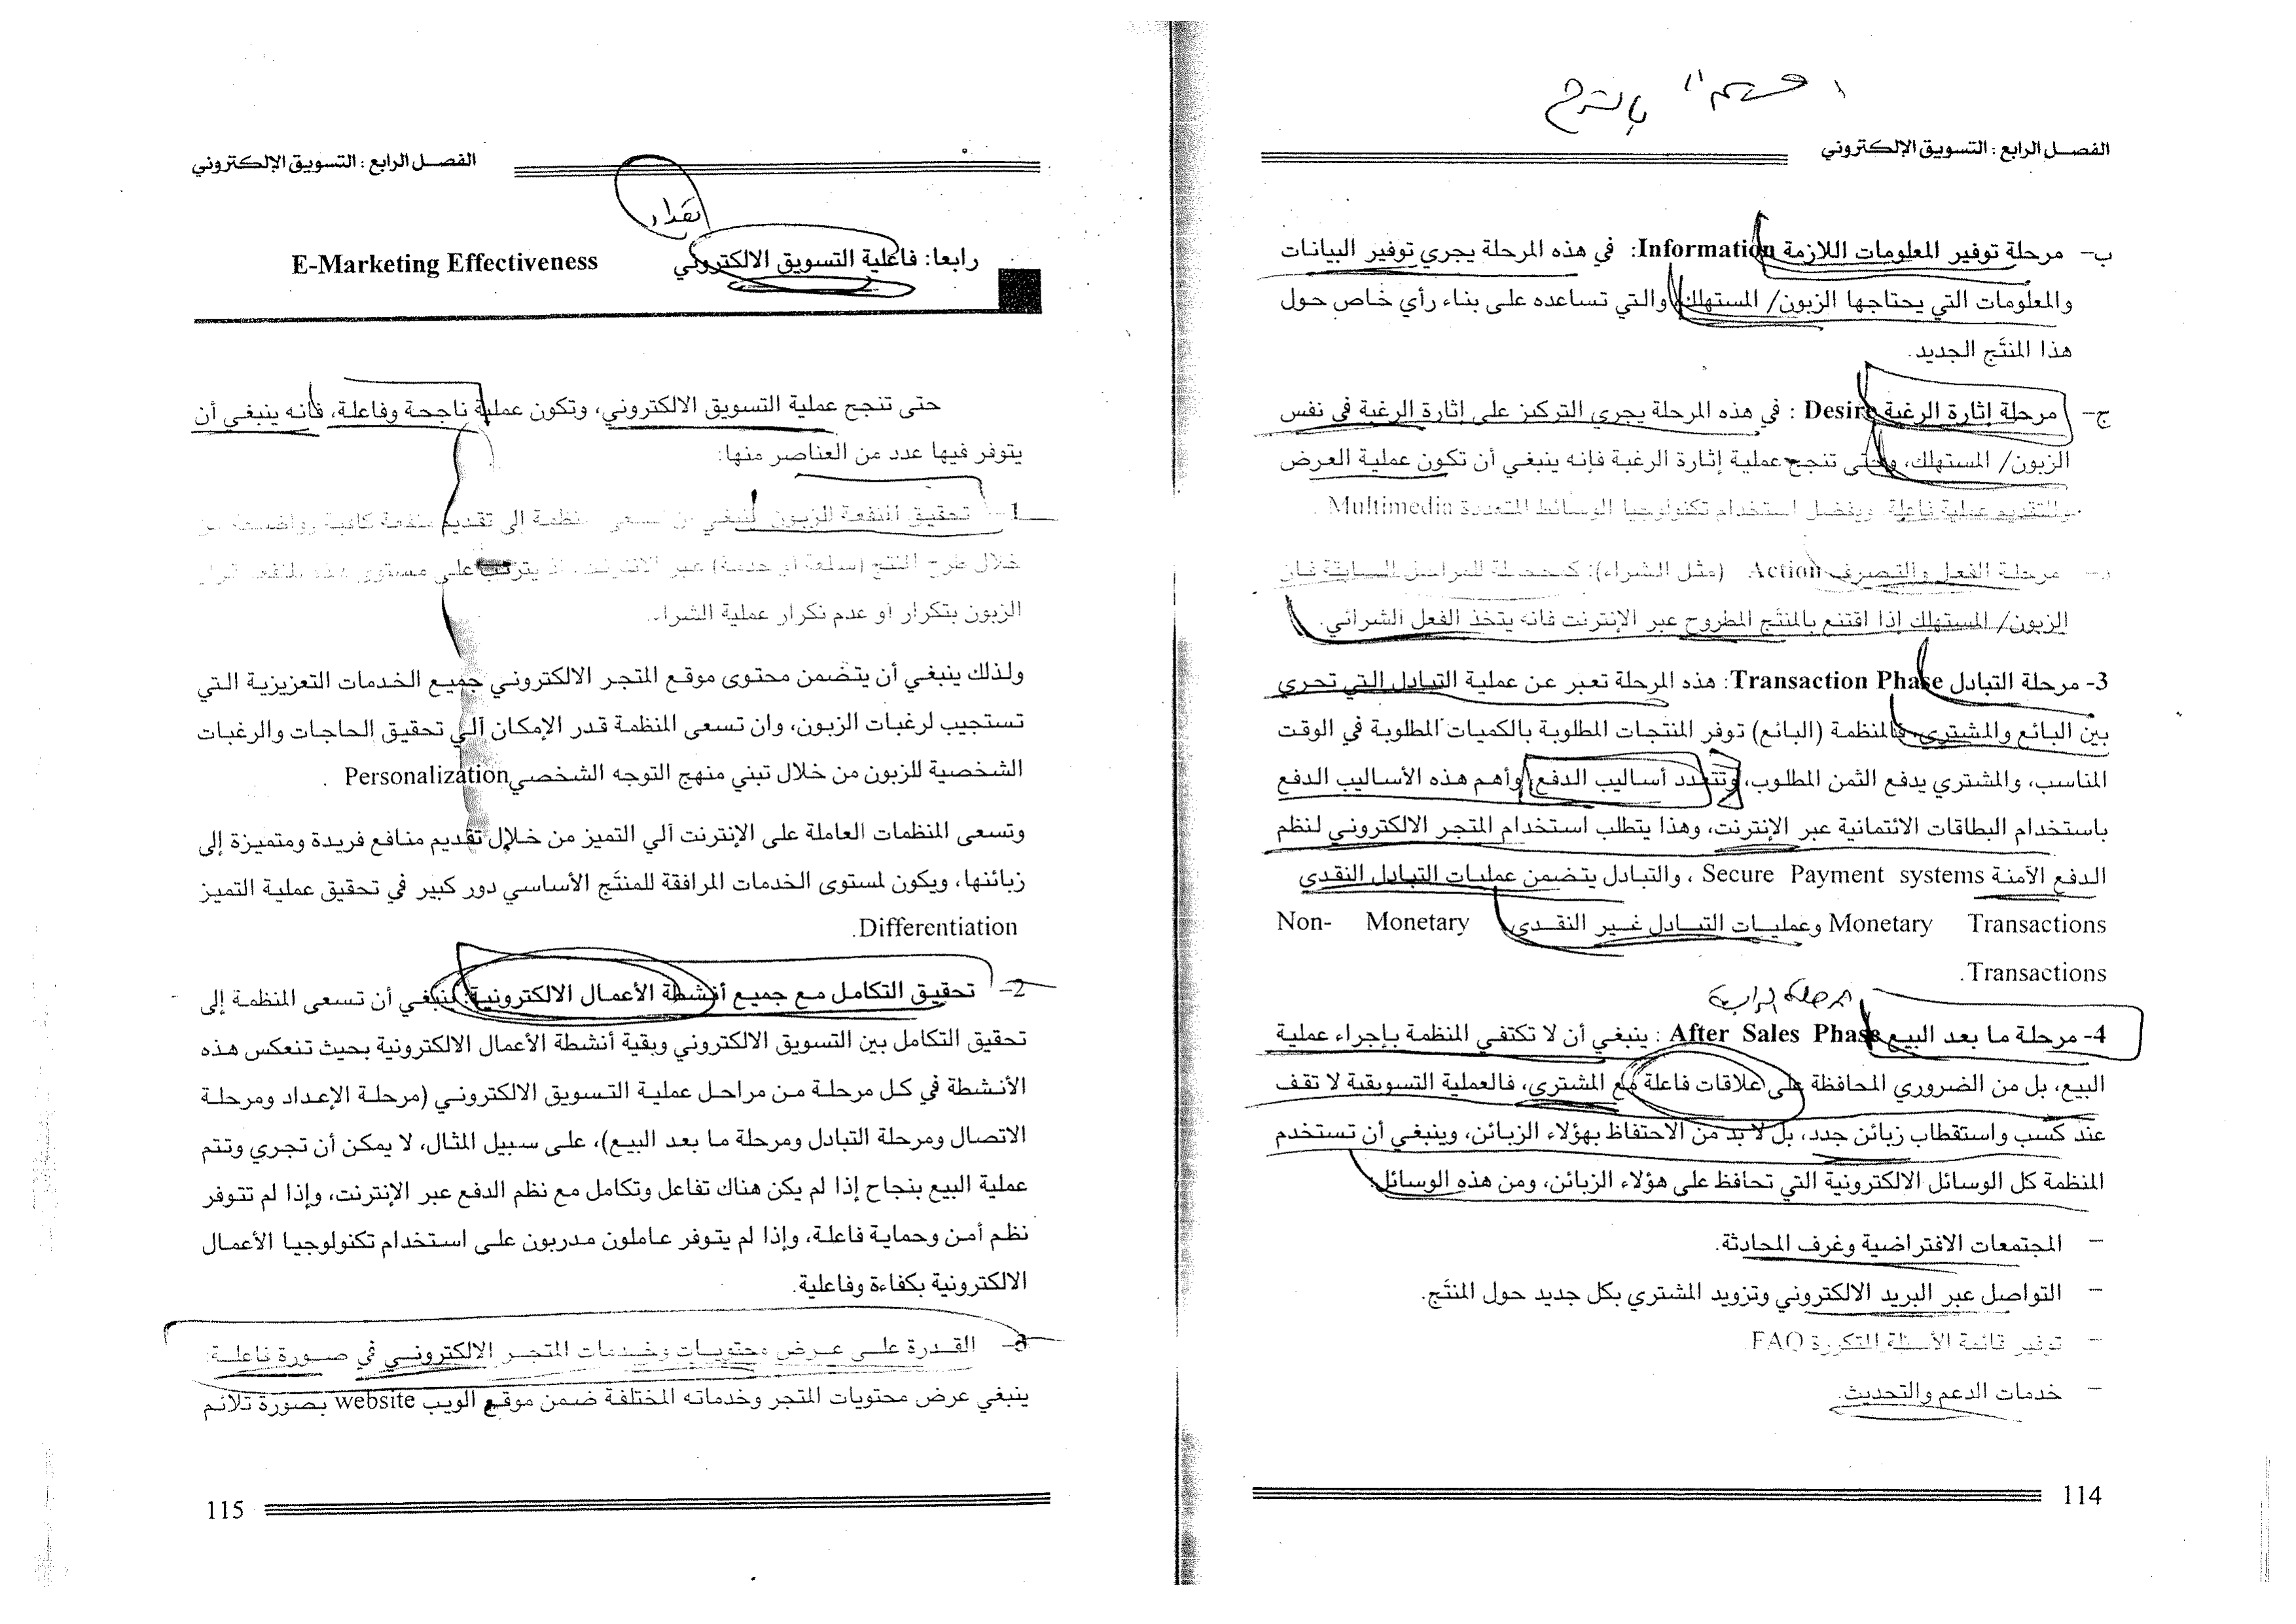 بالشرح
الفصل الرابع : التسويق الإلكتروني
ب- مرحلة توفير المعلومات اللازمة Information: في هذه المرحلة يجري توفير البيانات
والمعلومات التي يحتاجها الزبون/ المستهلك والتي تساعده على بناء رأي خاص حول
هذا المنتَج الجديد.
ج- مرحلة إثارة الرغبة Desire : في هذه المرحلة يجري التركيز على إثارة الرغبة في نفس
الزبون/ المستهلك، وحتى تنجح عملية إثارة الرغبة فإنه ينبغي أن تكون عملية العرض
والتقديم عملية فاعلة، ويفضل استخدام تكنولوجيا الوسائط المتعددة Multimedia .
د- مرحلة الفعل والتصرف Action (مثل الشراء): كمحصلة للمراحل السابقة فان
الزبون/ المستهلك إذا اقتنع بالمنتَج المطروح عبر الإنترنت فانه يتخذ الفعل الشرائي.
3- مرحلة التبادل Transaction Phase: هذه المرحلة تعبر عن عملية التبادل التي تجري
بين البائع والمشتري، فالمنظمة (البائع) توفر المنتجات المطلوبة بالكميات المطلوبة في الوقت
المناسب، والمشتري يدفع الثمن المطلوب، وتتعدد أساليب الدفع، وأهم هذه الأساليب الدفع
باستخدام البطاقات الائتمانية عبر الإنترنت، وهذا يتطلب استخدام المتجر الالكتروني لنظم
الدفع الآمنة Secure Payment systems ، والتبادل يتضمن عمليات التبادل النقدي
Monetary Transactions وعمليات التبادل غير النقدي Non- Monetary
Transactions.
المرحلة الرابعة
4- مرحلة ما بعد البيع After Sales Phase : ينبغي أن لا تكتفي المنظمة بإجراء عملية
البيع، بل من الضروري المحافظة على علاقات فاعلة مع المشتري، فالعملية التسويقية لا تقف
عند كسب واستقطاب زبائن جدد، بل لا بد من الاحتفاظ بهؤلاء الزبائن، وينبغي أن تستخدم
المنظمة كل الوسائل الالكترونية التي تحافظ على هؤلاء الزبائن، ومن هذه الوسائل:
– المجتمعات الافتراضية وغرف المحادثة.
– التواصل عبر البريد الالكتروني وتزويد المشتري بكل جديد حول المنتَج.
– توفير قائمة الأسئلة المتكررة FAQ.
– خدمات الدعم والتحديث.
114
الفصل الرابع : التسويق الإلكتروني
تعداد
رابعا: فاعلية التسويق الالكتروني E-Marketing Effectiveness
حتى تنجح عملية التسويق الالكتروني، وتكون عملية ناجحة وفاعلة، فانه ينبغي أن
يتوفر فيها عدد من العناصر منها:
1- تحقيق المنفعة للزبون: ينبغي أن تسعى المنظمة إلى تقديم منفعة كافية وواضحة من
خلال طرح المنتج (سلعة أو خدمة) عبر الانترنت، إذ يترتب على مستوى هذه المنفعة قرار
الزبون بتكرار أو عدم تكرار عملية الشراء.
ولذلك ينبغي أن يتضمن محتوى موقع المتجر الالكتروني جميع الخدمات التعزيزية التي
تستجيب لرغبات الزبون، وان تسعى المنظمة قدر الإمكان آلي تحقيق الحاجات والرغبات
الشخصية للزبون من خلال تبني منهج التوجه الشخصي Personalization .
وتسعى المنظمات العاملة على الإنترنت آلي التميز من خلال تقديم منافع فريدة ومتميزة إلى
زبائنها، ويكون لمستوى الخدمات المرافقة للمنتَج الأساسي دور كبير في تحقيق عملية التميز
Differentiation.
2- تحقيق التكامل مع جميع أنشطة الأعمال الالكترونية: ينبغي أن تسعى المنظمة إلى
تحقيق التكامل بين التسويق الالكتروني وبقية أنشطة الأعمال الالكترونية بحيث تنعكس هذه
الأنشطة في كل مرحلة من مراحل عملية التسويق الالكتروني (مرحلة الإعداد ومرحلة
الاتصال ومرحلة التبادل ومرحلة ما بعد البيع)، على سبيل المثال، لا يمكن أن تجري وتتم
عملية البيع بنجاح إذا لم يكن هناك تفاعل وتكامل مع نظم الدفع عبر الإنترنت، وإذا لم تتوفر
نظم أمن وحماية فاعلة، وإذا لم يتوفر عاملون مدربون على استخدام تكنولوجيا الأعمال
الالكترونية بكفاءة وفاعلية.
3- القدرة على عرض محتويات وخدمات المتجر الالكتروني في صورة فاعلة:
ينبغي عرض محتويات المتجر وخدماته المختلفة ضمن موقع الويب website بصورة تلائم
115